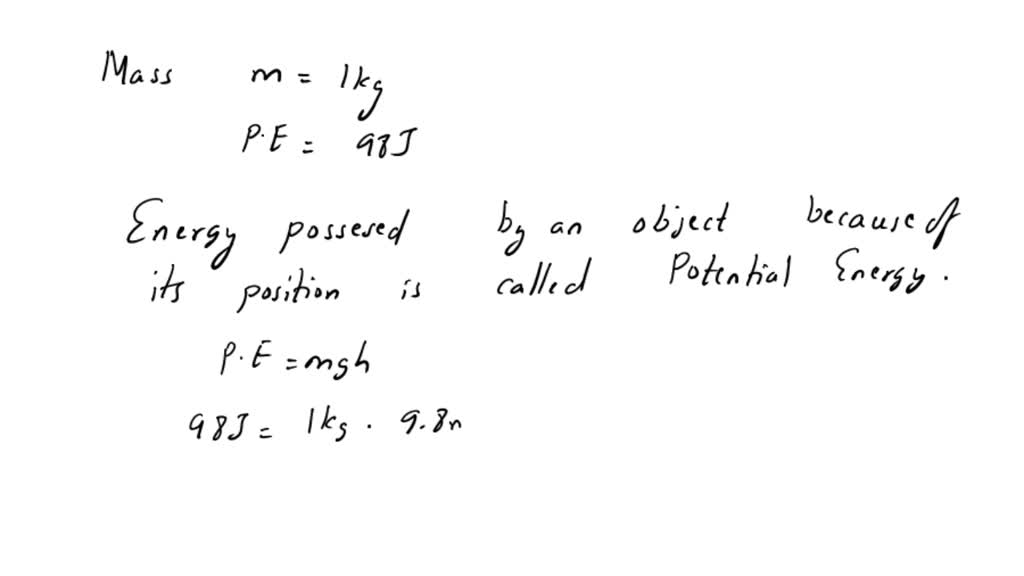 Mass m = 1kg
P.E = 98J
Energy possesed by an object because of
its position is called Potential Energy.
P.E = mgh
98J = 1kg . 9.8m